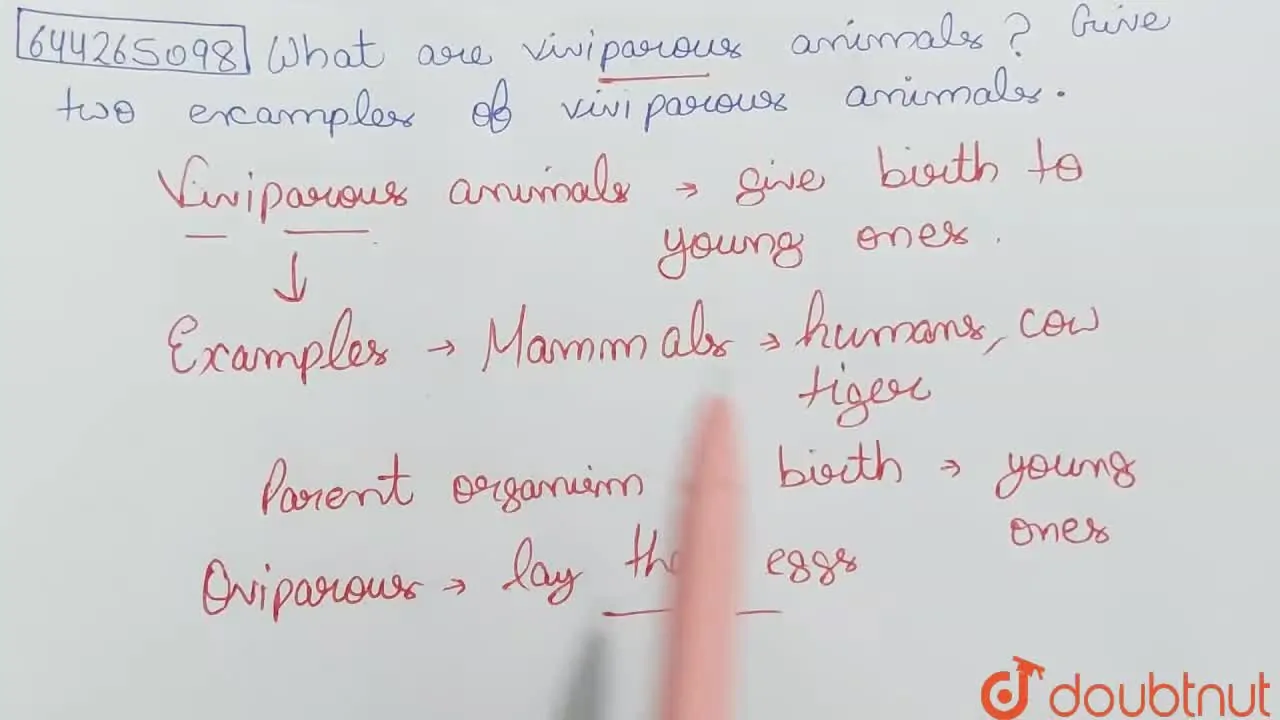 644265098 What are viviparous animals? Give
two examples of viviparous animals.
Viviparous animals → give birth to
young ones.
↓
Examples → Mammals → humans, cow
tiger
Parent organism birth → young
ones
Oviparous → lay eggs
doubtnut